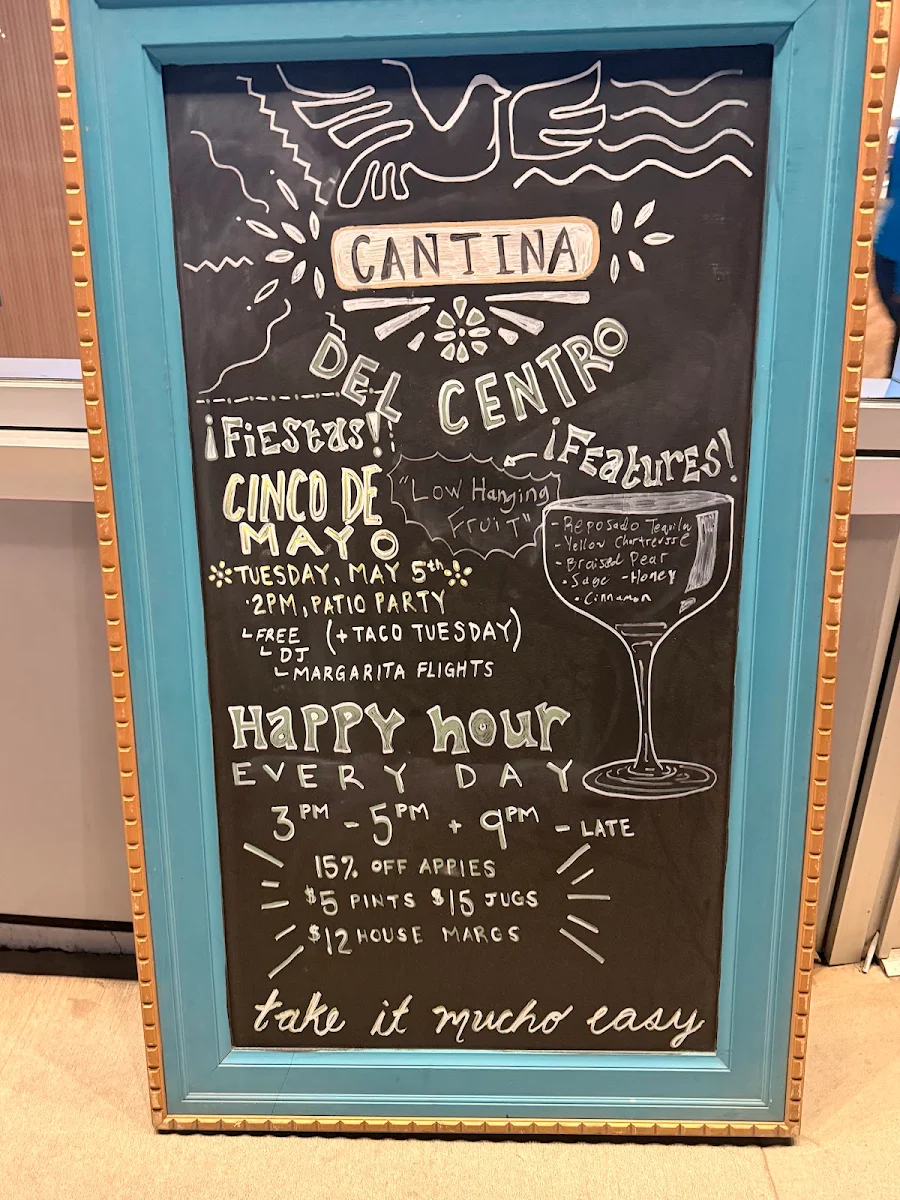 CANTINA
DEL CENTRO
¡Fiestas!
CINCO DE
MAYO
TUESDAY, MAY 5th
·2PM, PATIO PARTY
FREE (+TACO TUESDAY)
DJ
MARGARITA FLIGHTS
¡Features!
"Low Hanging
Fruit"
-Reposado Tequila
-Yellow Chartreusse
-Braised Pear
·Sage -Honey
·Cinnamon
Happy hour
EVERY DAY
3PM - 5PM + 9PM - LATE
15% OFF APPIES
$5 PINTS $15 JUGS
$12 HOUSE MARGS
take it mucho easy